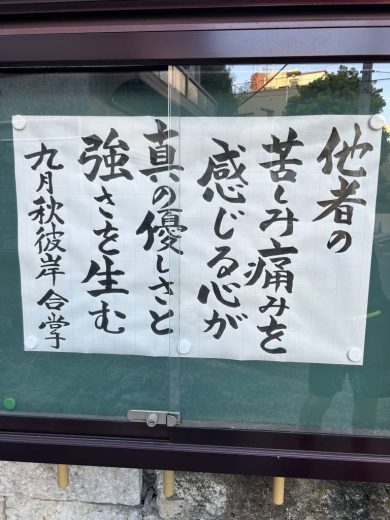 他者の
苦しみ痛みを
感じる心が
真の優しさと
強さを生む
九月秋彼岸 合掌